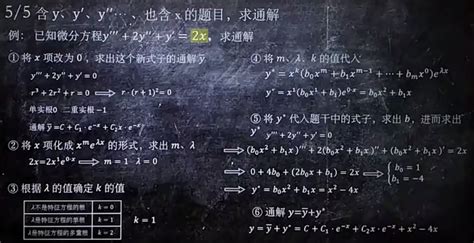 5/5 含 y、y′、y″…、也含 x 的题目，求通解
例： 已知微分方程y‴ + 2y″ + y′ = 2x，求通解
① 将 x 项改为 0，求出这个新式子的通解ȳ
y‴ + 2y″ + y′ = 0
r³ + 2r² + r = 0 ⟹ r·(r+1)² = 0
单实根0 二重实根−1
通解 ȳ = C + C₁·e⁻ˣ + C₂x·e⁻ˣ
② 将 x 项化成 xᵐe^λx 的形式，求出 m、λ
2x=2x¹e⁰·ˣ ⟹ m = 1 λ = 0
③ 根据 λ 的值确定 k 的值
λ不是特征方程的根 k = 0
λ是特征方程的单根 k = 1
λ是特征方程的多重根 k = 2
k = 1
④ 将 m、λ、k 的值代入
y* = xᵏ(b₀xᵐ + b₁xᵐ⁻¹ + ⋯ + bₘx⁰)e^λx
y* = x¹(b₀x¹ + b₁)e⁰·ˣ = b₀x² + b₁x
⑤ 将 y* 代入题干中的式子，求出 b，进而求出 y*
y‴ + 2y″ + y′ = 0
⟹ (b₀x² + b₁x)‴ + 2(b₀x² + b₁x)″ + (b₀x² + b₁x)′ = 2x
⟹ 0 + 4b₀ + (2b₀x + b₁) = 2x ⟹ { b₀ = 1
b₁ = −4
⟹ y* = b₀x² + b₁x = x² − 4x
⑥ 通解 y=ȳ+y*
y = ȳ + y* = C + C₁·e⁻ˣ + C₂x·e⁻ˣ + x² − 4x